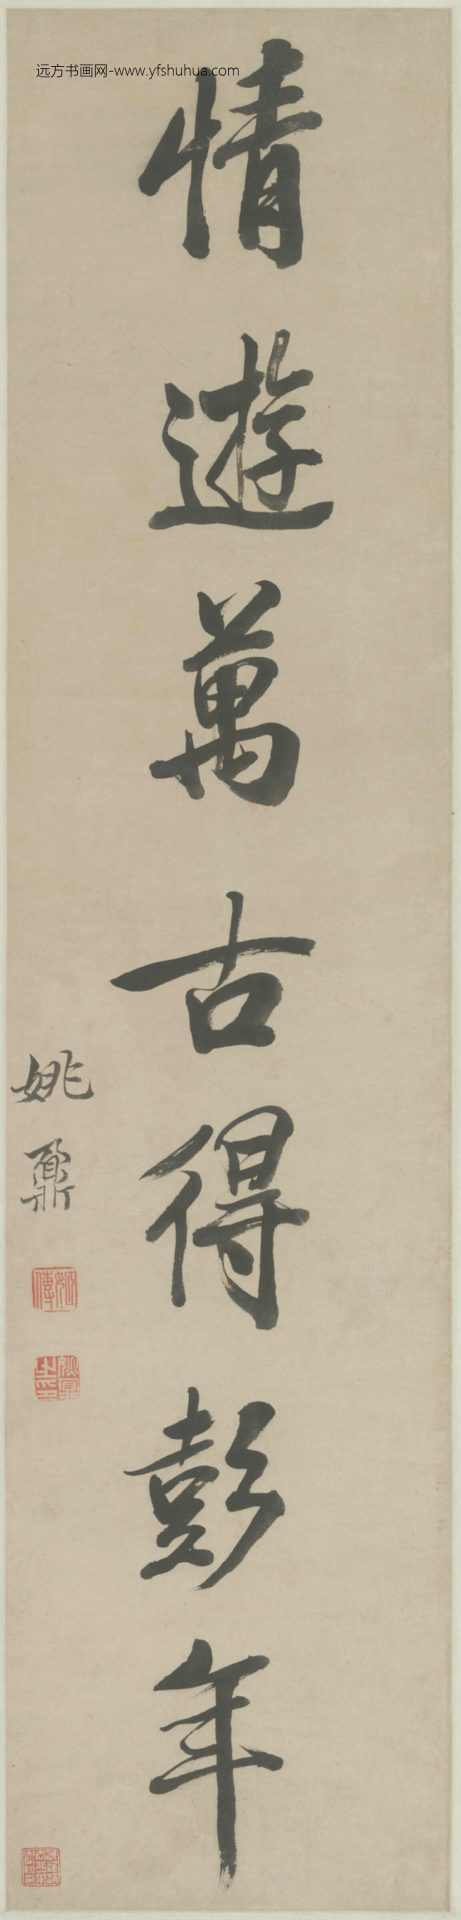 远方书画网-www.yfshuhua.com
情遊萬古得彭年
姚鼐